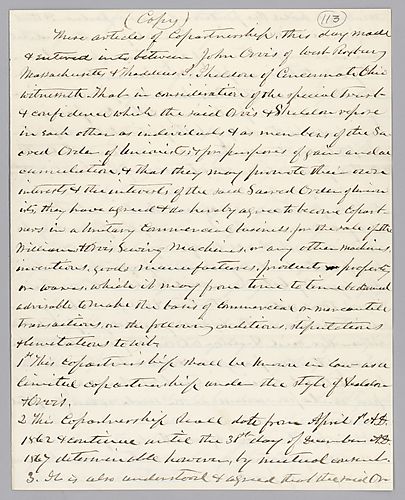 (Copy) 113
These articles of Copartnership, this day made
& entered into between John Orvis of West Roxbury
Massachusetts & Thaddeus S. Sheldon of Cincinnati Ohio
witnesseth. That in consideration of the special trust
& confidence which the said Orvis & Sheldon repose
in each other as individuals & as members of the Sa-
cred Order of Unionists; & for purposes of gain and ac
cumulation, & that they may promote their own
interests & the interests of the said Sacred Order of Union
ists, they have agreed & do hereby agree to become Copart-
ners in a Unitary Commercial business, for the sale of the
Williams & Orvis Sewing Machines, or any other machines,
inventions, goods, manufactures, products, property,
or wares, which it may from time to time be deemed
advisable to make the basis of commercial or mercantile
transactions, on the following conditions, stipulations
& limitations to wit.
1st This copartnership shall be known in law as a
limited copartnership under the style of Sheldon
& Orvis.
2 This Copartnership shall date from April 1st A.D.
1862 & continue until the 31st day of December A.D.
1867 determinable however, by mutual consent.
3. It is also understood & agreed that the said Or-